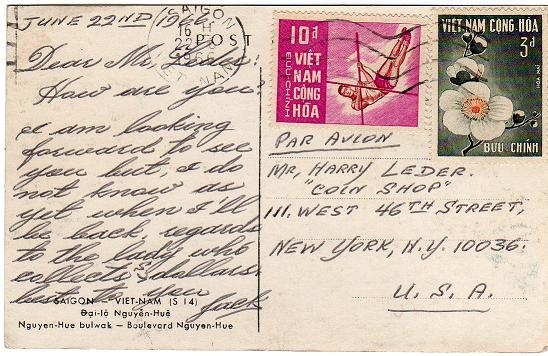 JUNE 22ND 1966.
Dear Mr,
How are you?
I am looking
forward to see
you but, i do
not know as
yet when I'll
be back, regards
to the lady who
collects dollars.
best to you
Jack
SAIGON VIET-NAM (S 14)
Đại-lộ Nguyễn-Huệ
Nguyen-Hue bulwak — Boulevard Nguyen-Hue
SAIGON
16 H
22
1966
VIET-NAM
POST
10đ
VIỆT
NAM
CỘNG
HÒA
BƯU-CHÍNH
VIỆT-NAM CỘNG-HÒA
3đ
BƯU CHÍNH
PAR AVION
MR, HARRY LEDER.
"COIN SHOP"
111. WEST 46TH STREET,
NEW YORK, N.Y. 10036.
U. S. A.